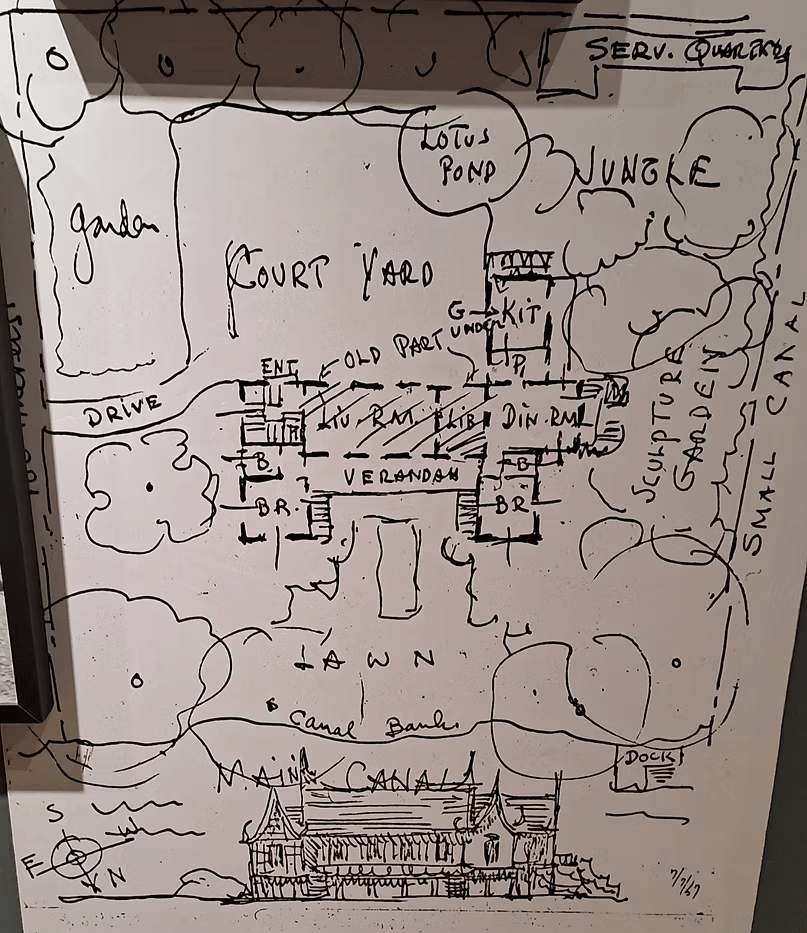 SERV. QUARTERS
LOTUS
POND
JUNGLE
Garden
COURT YARD
G
UNDER
KIT
P.
ENT.
OLD PART
DRIVE
LIV. RM.
LIB
DIN. RM.
B
B
VERANDAH
BR.
BR
SCULPTURE
GARDEN
SMALL CANAL
LAWN
Canal Bank
DOCK
MAIN CANAL
S
W
E
N